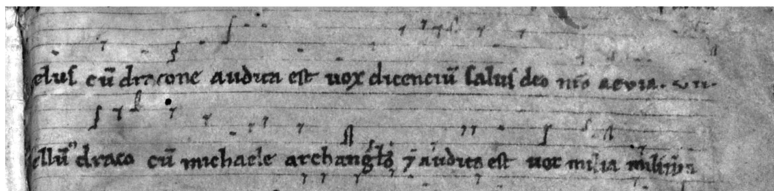 elus cū dracone audita est uox dicenciū salus deo nr̄o aeuia.
ellū draco cū michaele archanglō ⁊ audita est uox milia miliū